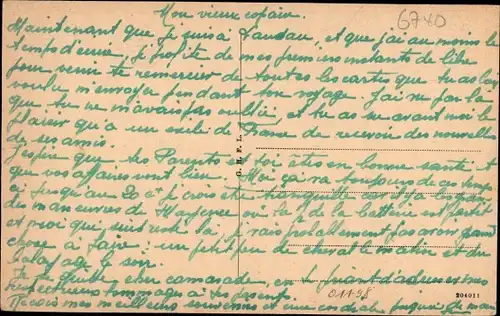 Mon vieux copain.
6740
Maintenant que je suis à Landau, et que j'ai au moins le
temps d'écrire, je profite de mes premiers instants de libre
pour venir te remercier de toutes les cartes que tu as bien
voulu m'envoyer pendant ton voyage. J'ai vu par là
que tu ne m'avais pas oublié, et tu as avant moi le
plaisir qu'a un exilé de France de recevoir des nouvelles
de ses amis.
J'espère que tes Parents et toi êtes en bonne santé et
que vos affaires vont bien. Moi ça va toujours
jusqu'au 20 et je crois être tranquille car il y a
des manœuvres de Mayence où la de la batterie est partie
et moi qui suis resté là, je vais probablement pas avoir grand
chose à faire: un petit peu de cheval le matin et du
balayage le soir.
Je te quitte cher camarade, en te priant d'adresser mes
respectueux hommages à tes parents.
Reçois mes meilleurs souvenirs et une cordiale poignée de main
C. H. F. L.
01198
204011